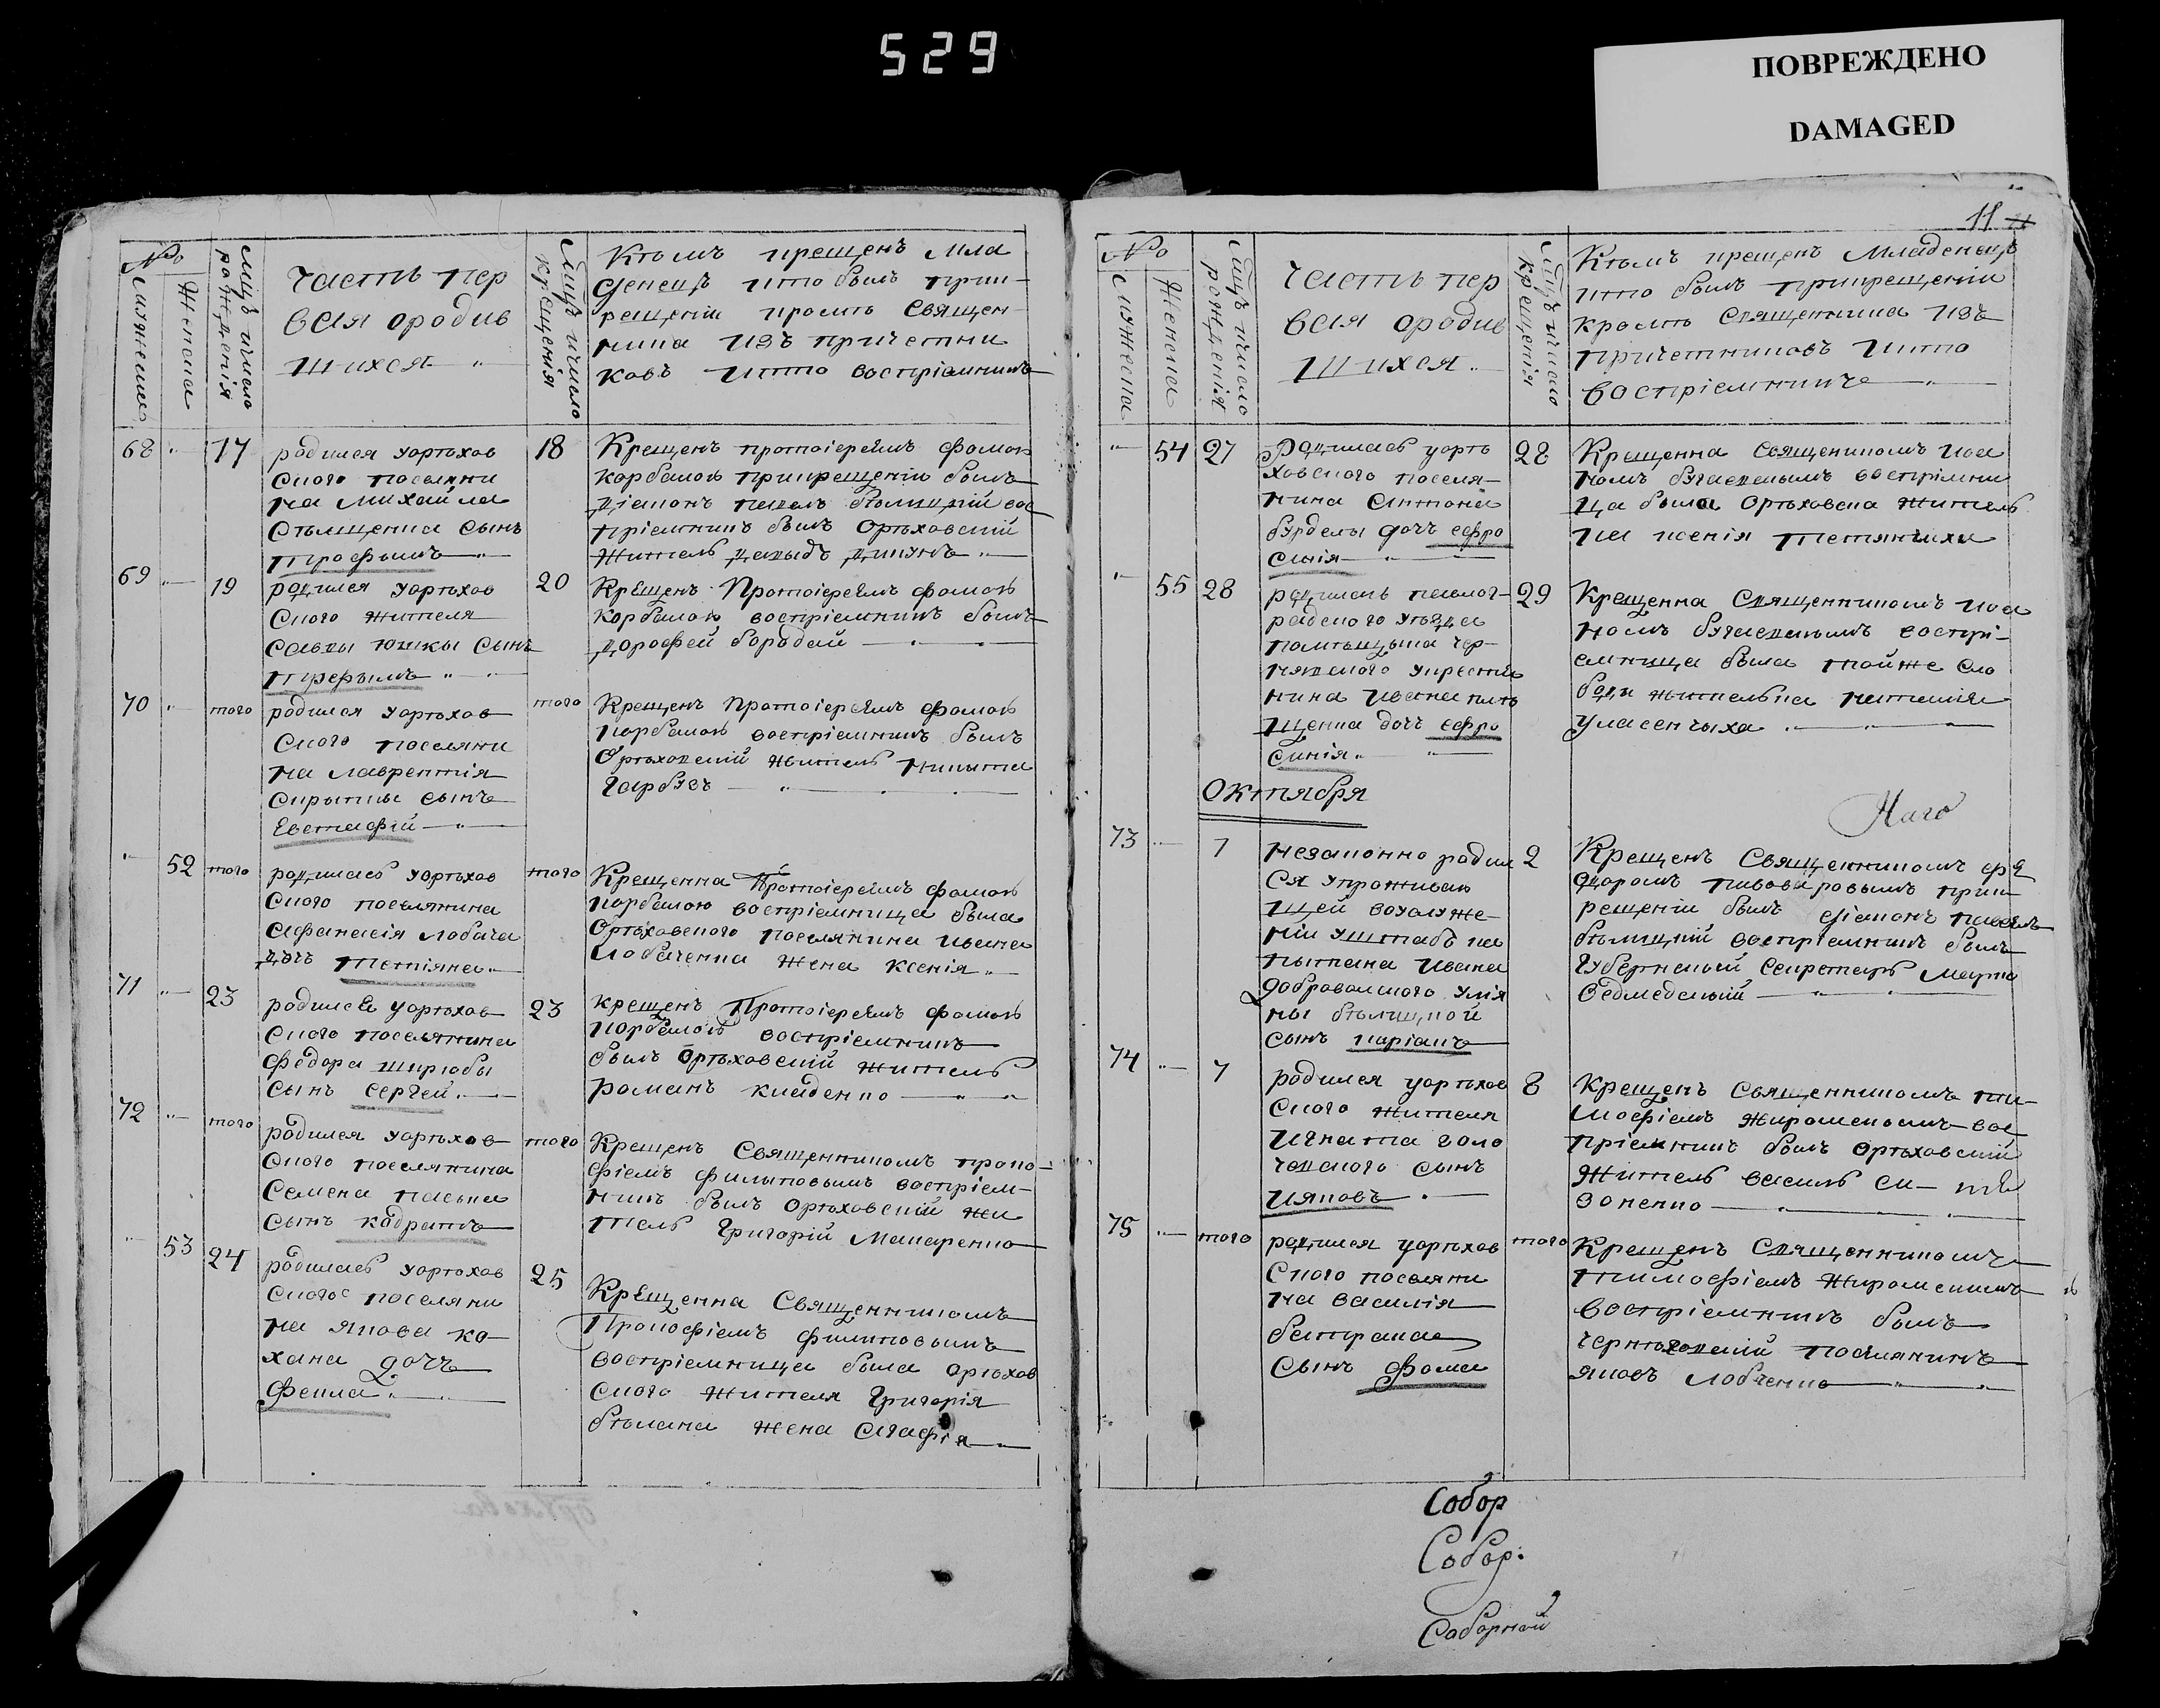 529
ПОВРЕЖДЕНО
DAMAGED
№
мужеска
Женска
Мцъ ичисло
рожденія
Часть пер
вая ородив
шихся
Мцъ ичисло
крещенія
Кѣмъ крещенъ Мла
денецъ икто былъ прик-
рещеніи кромѣ Священ-
ника изъ причетни
ковъ Икто воспріемникъ
68
17
родился уорѣхов
ского поселяни
на Михайла
Стѣщенка Сынъ
трофымъ
18
Крещенъ протоіереемъ фомою
Корбалою прикрещеніи былъ
діаконъ Павелъ бѣлицкій вос
пріемникъ былъ Орѣховскій
Житель давыдъ дикунъ
69
19
родился уорѣхов
ского жителя
Саввы юшкы Сынъ
трофымъ
20
Крещенъ Протоіереемъ фомою
Корбалою воспріемникъ былъ
дорофей бородай
70
того
родился уорѣхов
ского поселяни
на лаврентія
Скрыпкы сынъ
Евстафій
того
Крещенъ Протоіереемъ фомою
корбалою воспріемникъ былъ
Орѣховскій житель никита
гарбузъ
52
того
родилась уорѣхов
ского поселянина
афанасія лобача
дочъ Тетіяна
того
Крещенна Протоіереемъ фомою
корбалою воспріемница была
Орѣховского поселянина ивана
лобаченка жена ксенія
71
23
родился уорѣхов
ского поселянина
федора шкрюбы
сынъ Сергей
23
крещенъ Протоіереемъ фомою
корбалою воспріемникъ
былъ Орѣховскій житель
романъ кладенко
72
того
родился уорѣхов
ского поселянина
Семена паська
сынъ кодратъ
того
Крещенъ Священникомъ проко-
фіемъ филиповымъ воспріем-
никъ былъ Орѣховскій жи
тель Григорій Макаренко
53
24
родилась уорѣхов
ского поселяни
на якова ко-
хана дочъ
Фекла
25
Крещенна Священникомъ
Прокофіемъ филиповымъ
воспріемница была орѣхов
ского жителя Григорія
бѣлана жена агафія
11
№
мужеска
Женска
Мцъ ичисло
рожденія
Часть пер
вая ородив
шихся
Мцъ ичисло
крещенія
Кѣмъ крещенъ Младенецъ
икто былъ прикрещеніи
кромѣ Священника изъ
причетниковъ Икто
воспріемникъ
54
27
Родилась уорѣ
ховского поселя-
нина антона
бурделы дочъ ефро
синія
28
Крещенна Священникомъ иоа
номъ воспріемни
ца была Орѣховска житель
ка ксенія тетянчиха
55
28
родилась павлог-
радского уѣзда
помѣщыка чер-
укрестья
нина ивана
щенка дочъ ефро
синія
29
Крещенна Священникомъ иоа
номъ воспрі-
емница была тойже сло
боды жителька наталія
уласенчыха
Октября
Наго
73
1
незаконно родил
ся упрожываю
щей вуслуже-
ніи уштабъ ка
пытана ивана
добровольского улія
ны бѣлицкой
сынъ маркіанъ
2
Крещенъ Священникомъ фе
доромъ прик
рещеніи былъ діаконъ павелъ
бѣлицкій воспріемникъ былъ
Губернскій секретарь Марко
ведмедскый
74
7
родился уорѣхов
ского жителя
игната голо
сынъ
ияковъ
8
Крещенъ Священникомъ ти-
мофіемъ жироменкомъ вос
пріемникъ былъ Орѣховскій
Житель василь са-
зоненко
75
того
родился уорѣхов
ского поселяни
на василія
батрака
сынъ фома
того
Крещенъ Священникомъ
тимофіемъ Жироменкомъ
воспріемникъ былъ
поселянинъ
яковъ лобченко
Собор
Собор.
Соборной